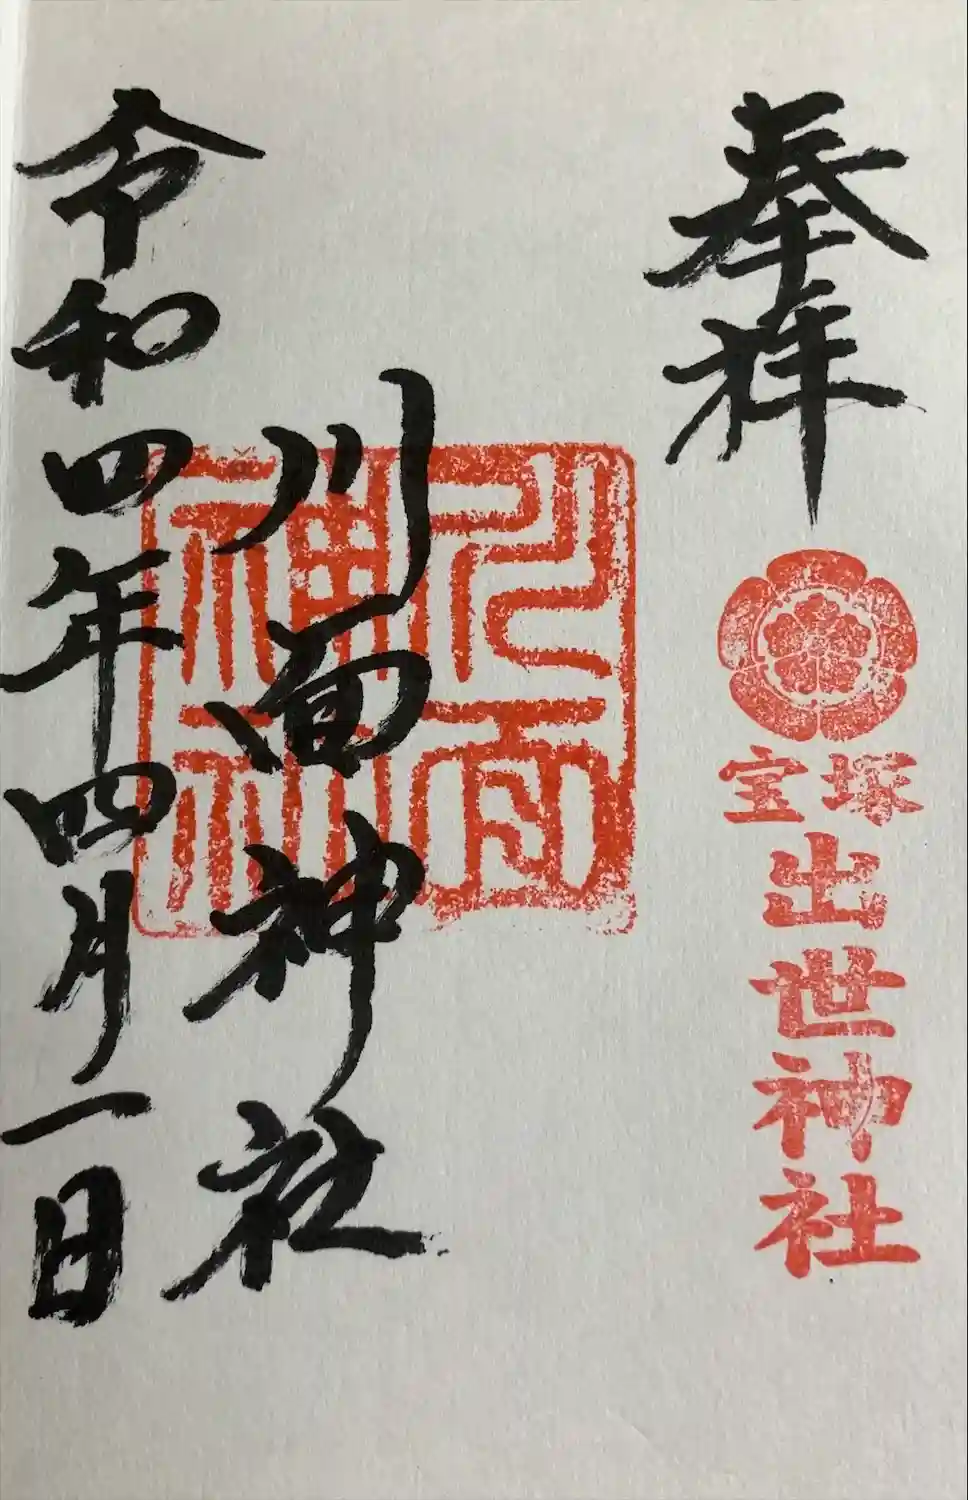 奉拝
宝塚
出世神社
川面神社
川面神社
令和四年四月一日